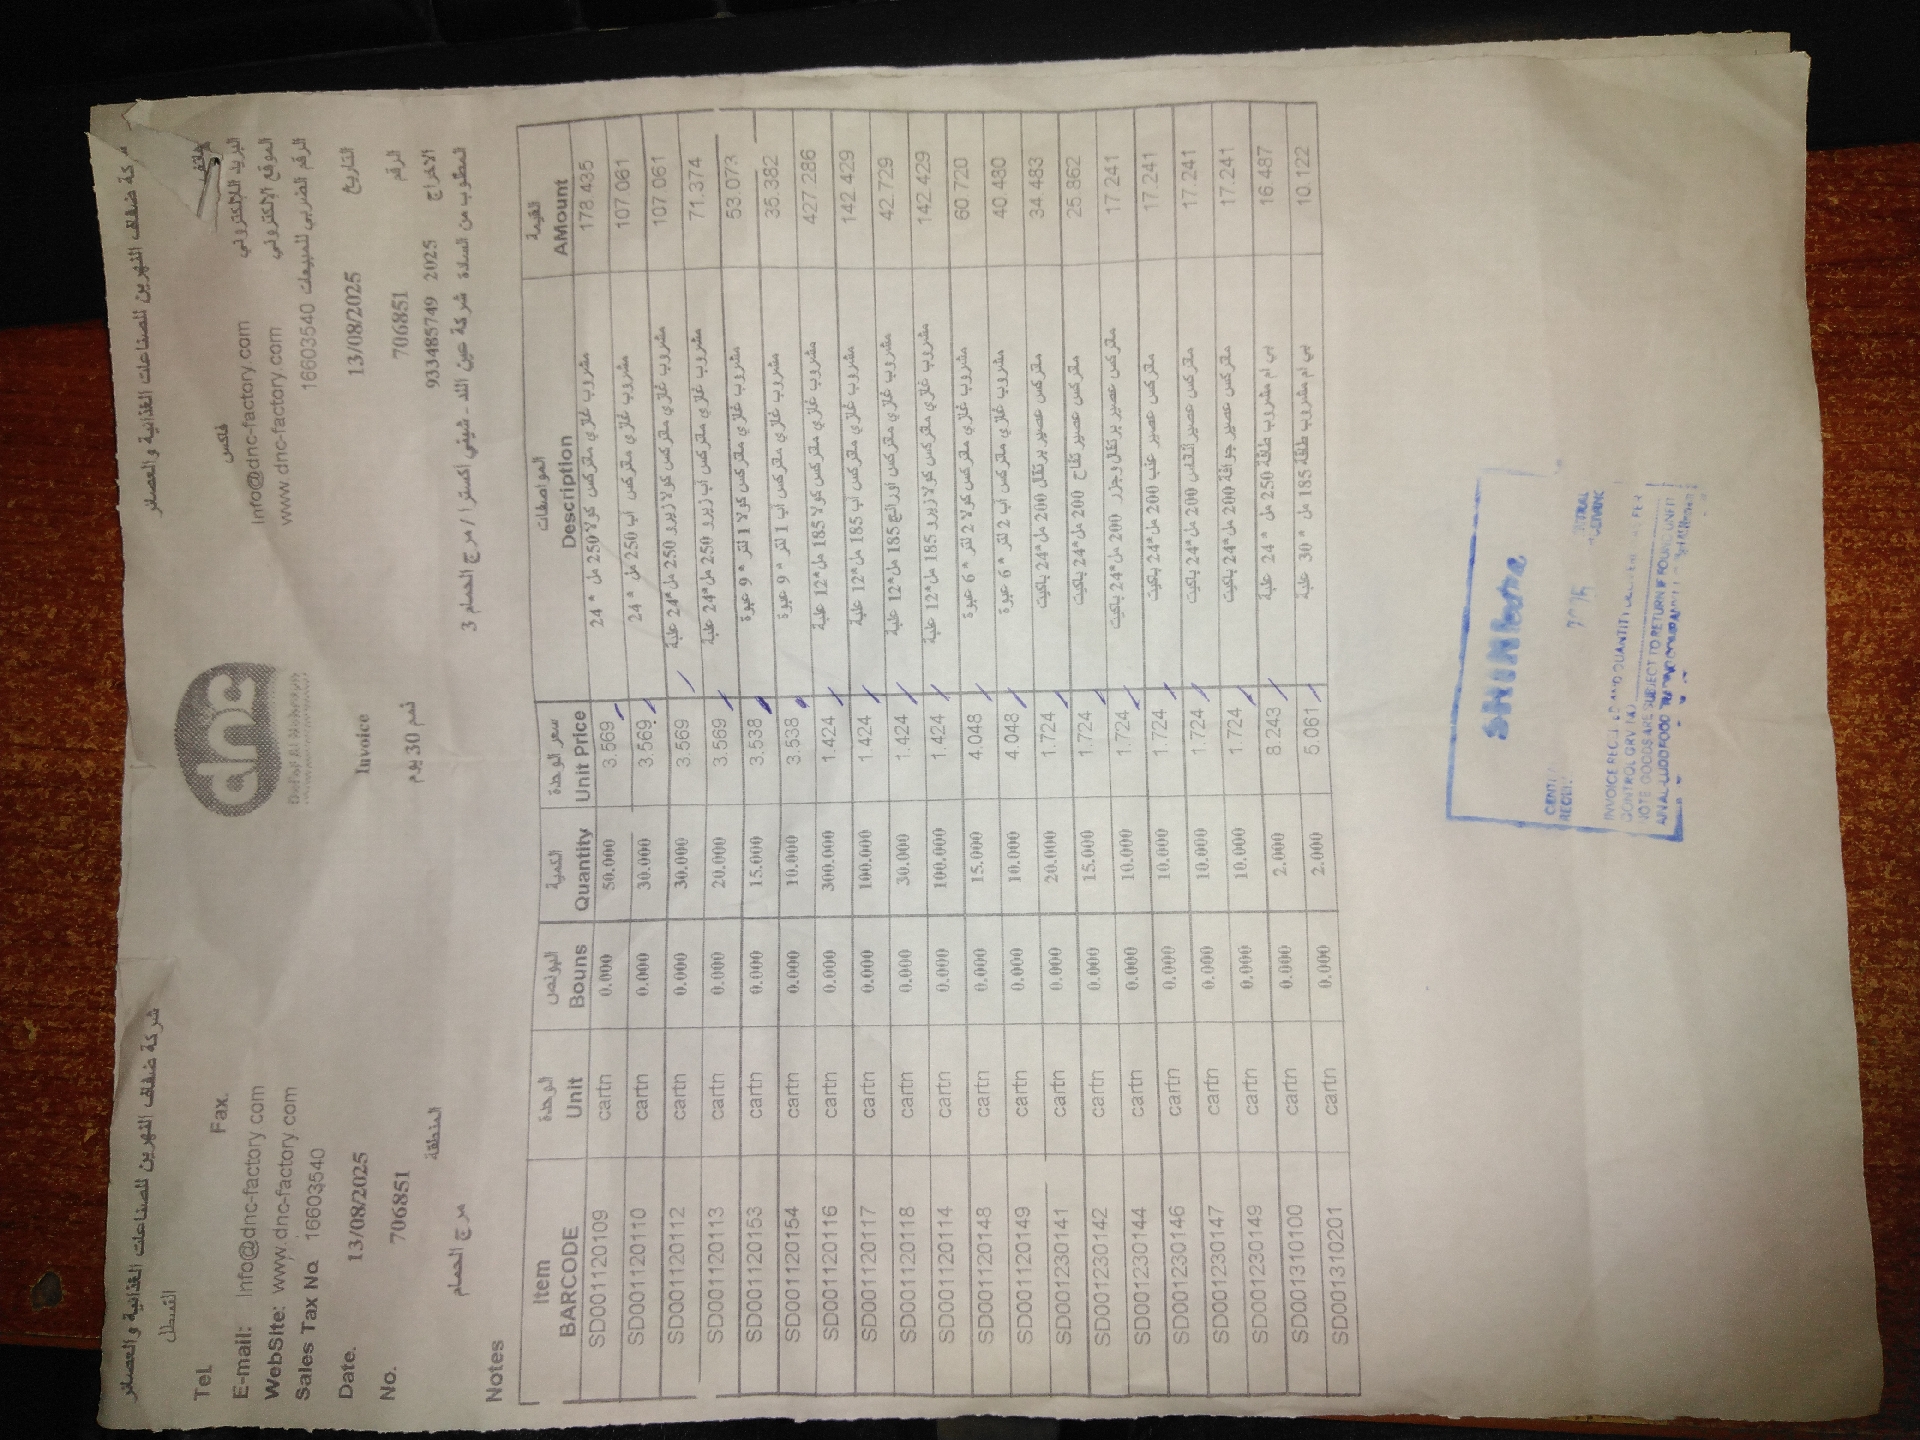 شركة ضفاف النهرين للصناعات الغذائية والعصائر
شركة ضفاف النهرين للصناعات الغذائية والعصائر
القسطل
dnc
Tel.
Fax.
فاكس
هاتف
E-mail: Info@dnc-factory.com
Info@dnc-factory.com البريد الالكتروني
WebSite: www.dnc-factory.com
www.dnc-factory.com الموقع الالكتروني
Sales Tax No. 16603540
16603540 الرقم الضريبي للمبيعات
Date. 13/08/2025
Invoice
13/08/2025 التاريخ
No. 706851
ذمم 30 يوم
706851 الرقم
المنطقة
933485749 2025 الاخراج
مرج الحمام
المطلوب من السادة شركة عين اللد - شيني اكسترا / مرج الحمام 3
Notes
Item الوحدة البونص الكمية سعر الوحدة المواصفات القيمة
BARCODE Unit Bouns Quantity Unit Price Description AMount
SD001120109 cartn 0.000 50.000 3.569 مشروب غازي مقركس كولا 250 مل * 24 178.435
SD001120110 cartn 0.000 30.000 3.569 مشروب غازي مقركس آب 250 مل * 24 107.061
SD001120112 cartn 0.000 30.000 3.569 مشروب غازي مقركس كولا زيرو 250 مل*24 علبة 107.061
SD001120113 cartn 0.000 20.000 3.569 مشروب غازي مقركس آب زيرو 250 مل*24 علبة 71.374
SD001120153 cartn 0.000 15.000 3.538 مشروب غازي مقركس كولا 1 لتر * 9 عبوة 53.073
SD001120154 cartn 0.000 10.000 3.538 مشروب غازي مقركس آب 1 لتر * 9 عبوة 35.382
SD001120116 cartn 0.000 300.000 1.424 مشروب غازي مقركس كولا 185 مل*12 علبة 427.286
SD001120117 cartn 0.000 100.000 1.424 مشروب غازي مقركس آب 185 مل*12 علبة 142.429
SD001120118 cartn 0.000 30.000 1.424 مشروب غازي مقركس اورانج 185 مل*12 علبة 42.729
SD001120114 cartn 0.000 100.000 1.424 مشروب غازي مقركس كولا زيرو 185 مل*12 علبة 142.429
SD001120148 cartn 0.000 15.000 4.048 مشروب غازي مقركس كولا 2 لتر * 6 عبوة 60.720
SD001120149 cartn 0.000 10.000 4.048 مشروب غازي مقركس آب 2 لتر * 6 عبوة 40.480
SD001230141 cartn 0.000 20.000 1.724 مقركس عصير برتقال 200 مل*24 باكيت 34.483
SD001230142 cartn 0.000 15.000 1.724 مقركس عصير تفاح 200 مل*24 باكيت 25.862
SD001230144 cartn 0.000 10.000 1.724 مقركس عصير برتقال وجزر 200 مل*24 باكيت 17.241
SD001230146 cartn 0.000 10.000 1.724 مقركس عصير عنب 200 مل*24 باكيت 17.241
SD001230147 cartn 0.000 10.000 1.724 مقركس عصير أناناس 200 مل*24 باكيت 17.241
SD001230149 cartn 0.000 10.000 1.724 مقركس عصير جوافة 200 مل*24 باكيت 17.241
SD001310100 cartn 0.000 2.000 8.243 بي ام مشروب طاقة 250 مل * 24 علبة 16.487
SD001310201 cartn 0.000 2.000 5.061 بي ام مشروب طاقة 185 مل * 30 علبة 10.122
INVOICE
AND QUANTITI
CONTROL GRV
GOODS ARE SUBJECT TO RETURN IF FOUND UNFIT